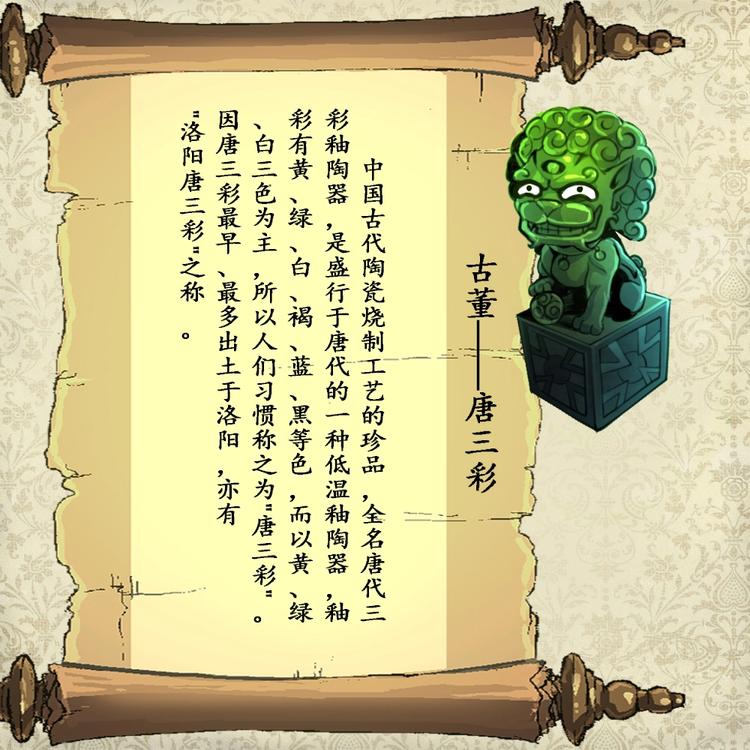 古董——唐三彩
中国古代陶瓷烧制工艺的珍品，全名唐代三
彩釉陶器，是盛行于唐代的一种低温釉陶器，釉
彩有黄、绿、白、褐、蓝、黑等色，而以黄、绿
、白三色为主，所以人们习惯称之为"唐三彩"。
因唐三彩最早、最多出土于洛阳，亦有
"洛阳唐三彩"之称 。